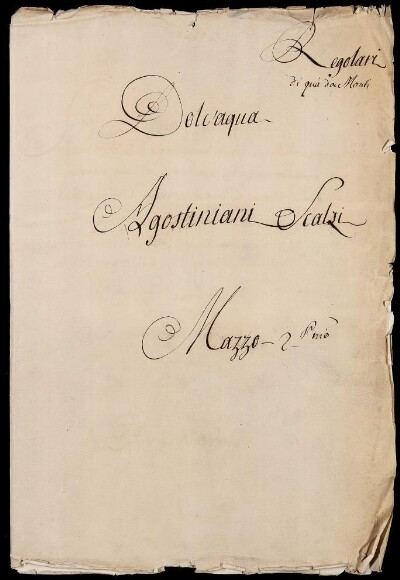 Regolari
di quà da Monti
Dolc'aqua
Agostiniani Scalzi
Mazzo 2